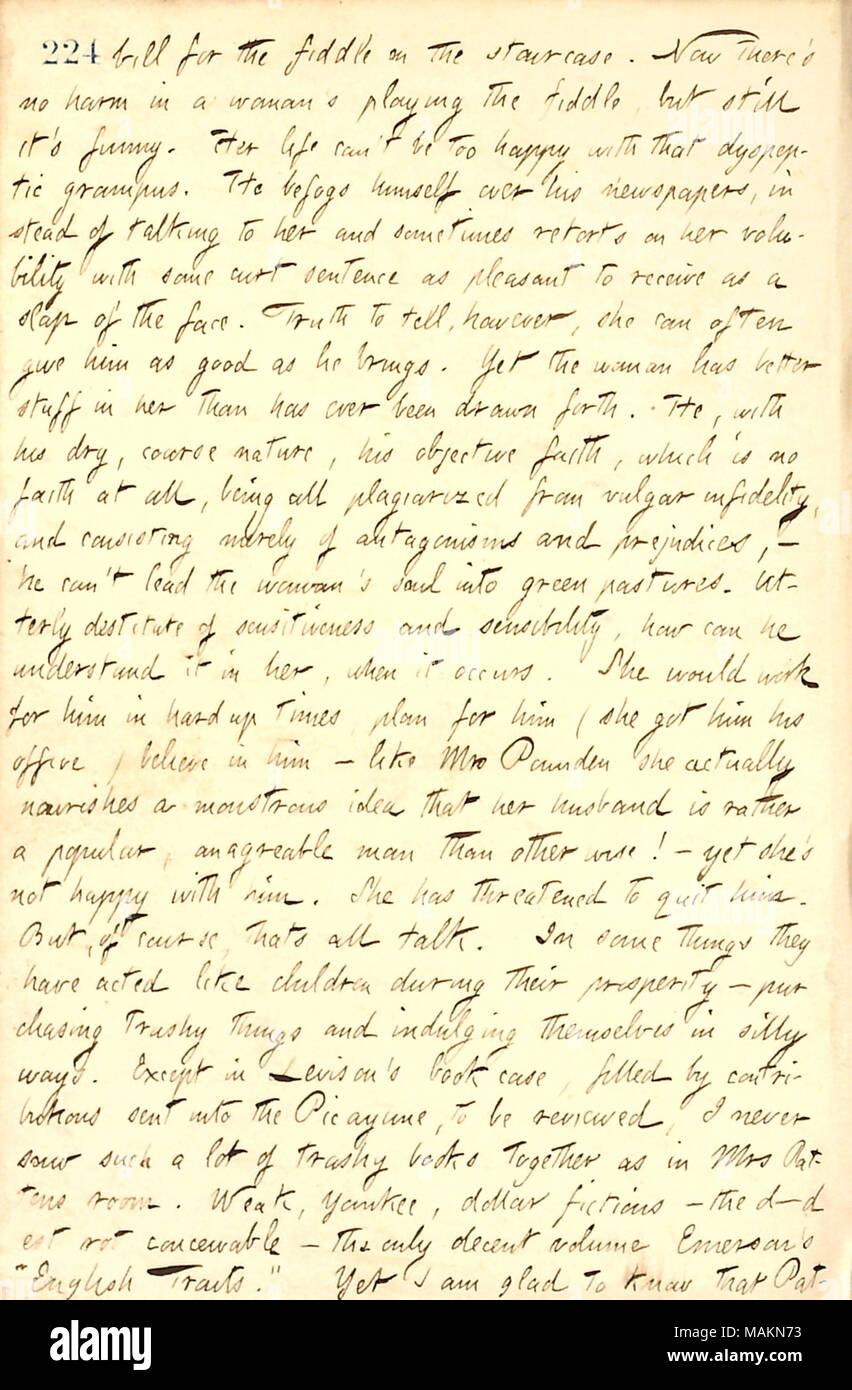 224 bill for the fiddle on the staircase. Now there's
no harm in a woman's playing the fiddle, but still
it's funny. Her life can't be too happy with that dyspep-
tic grampus. He befogs himself over his newspapers, in
stead of talking to her and sometimes retorts on her volu-
bility with some curt sentence as pleasant to receive as a
slap of the face. Truth to tell, however, she can often
give him as good as he brings. Yet the woman has better
stuff in her than has ever been drawn forth. He, with
his dry, coarse nature, his objective faith, which is no
faith at all, being all plagiarized from vulgar infidelity,
and consisting merely of antagonisms and prejudices, —
he can't lead the woman's soul into green pastures. Ut-
terly destitute of sensitiveness and sensibility, how can he
understand it in her, when it occurs. She would work
for him in hard up times, plan for him (she got him his
office) believe in him — like Mrs Pounden she actually
nourishes a monstrous idea that her husband is rather
a popular, an agreable man than other wise! — yet she's
not happy with him. She has threatened to quit him.
But, of course, thats all talk. In some things they
have acted like children during their prosperity — pur
chasing trashy things and indulging themselves in silly
ways. Except in Levison's book case, filled by contri-
butions sent into the Picayune, to be reviewed, I never
saw such a lot of trashy books together as in Mrs Pat-
tens room. Weak, Yankee, dollar fictions — the d—d
est rot conceivable — the only decent volume Emerson's
"English Traits." Yet I am glad to know that Pat-
alamy
Image ID: MAKN73
www.alamy.com